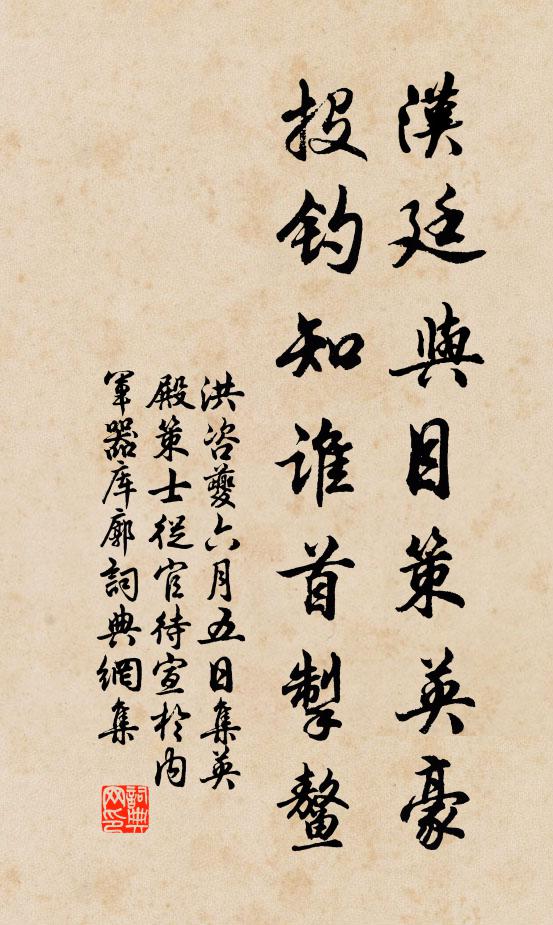 漢廷與目策英豪
投鈞知誰首掣鰲
洪咨夔六月五日集英
殿策士從官待宣於内
軍器庫廊詞典網集
詞典网印